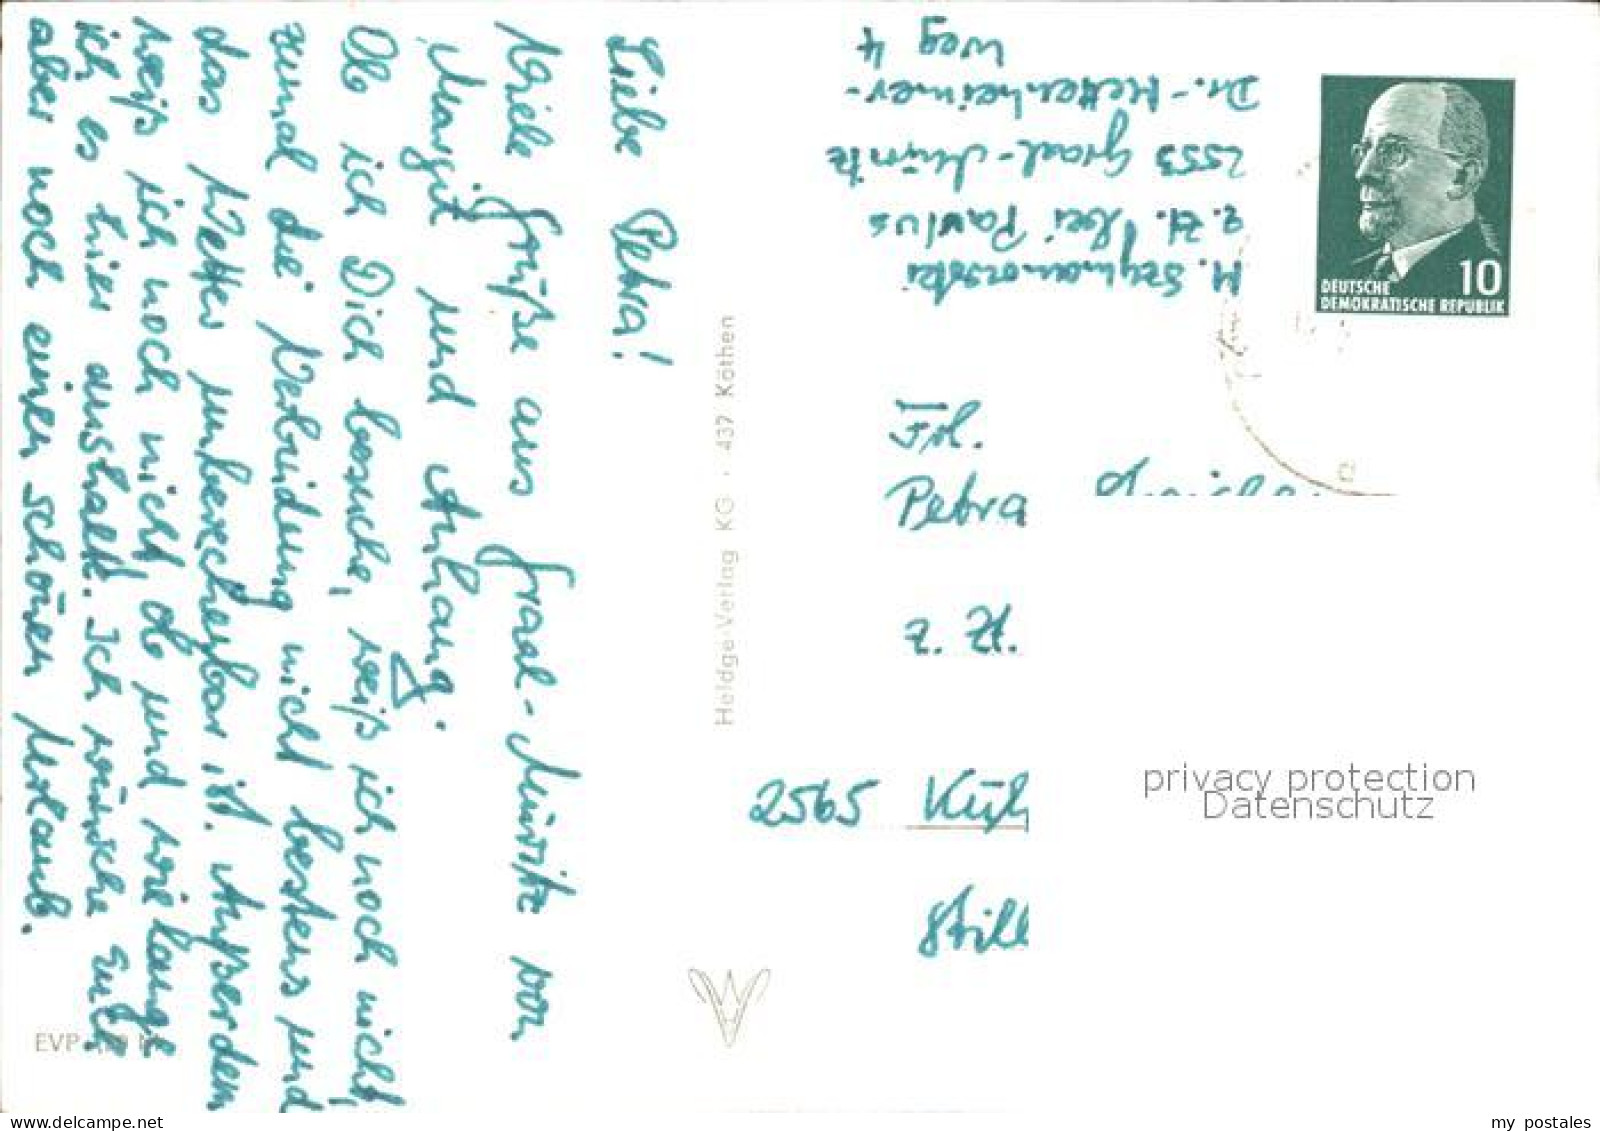 Liebe Petra!
Viele Grüße aus Graal-Müritz von
Margit und Anhang.
Ob ich Dich besuche, weiß ich noch nicht,
zumal die Verbindung nicht bestens und
das Wetter unberechenbar ist. Außerdem
weiß ich noch nicht, ob und wie lange
ich es hier aushalte. Ich wünsche Euch
aber noch einen schönen Urlaub.
EVP
Heldge-Verlag KG · 437 Köthen
z. Zt. bei Pavlus
2553 Graal-Müritz
Dr.-Hettenheimer-
Weg 4
DEUTSCHE
DEMOKRATISCHE REPUBLIK
10
Frl.
Petra
z. Zt.
2565 Küh
privacy protection
Datenschutz
my postales
www.delcampe.net